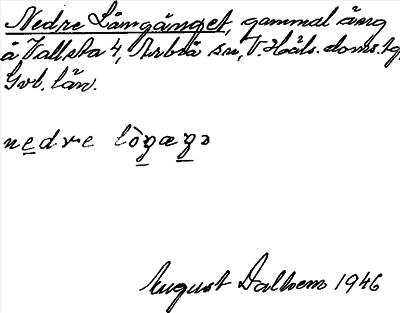 Nedre Långänget, gammal äng
å Vallsta 4, Arbrå sn, V. Häls. doms. tg,
Gvb. län.
nedre lògægə
August Dalhem 1946